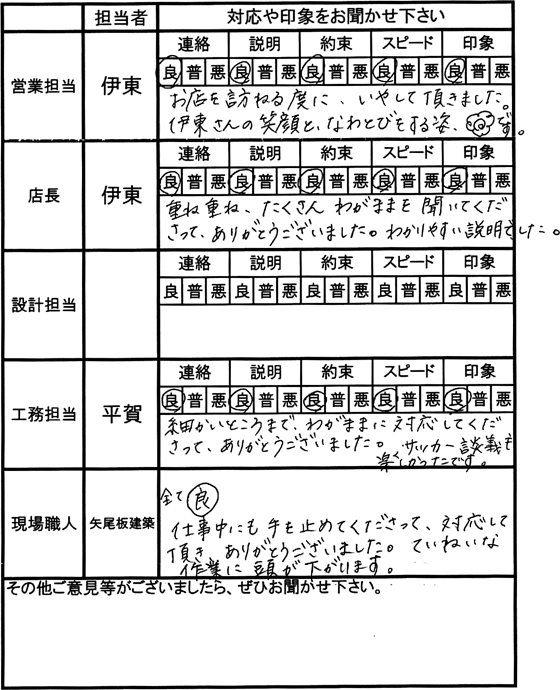 担当者 対応や印象をお聞かせ下さい
営業担当 伊東
連絡 説明 約束 スピード 印象
良 普 悪 良 普 悪 良 普 悪 良 普 悪 良 普 悪
お店を訪ねる度に、いやして頂きました。
伊東さんの笑顔と、なわとびをする姿、です。
店長 伊東
連絡 説明 約束 スピード 印象
良 普 悪 良 普 悪 良 普 悪 良 普 悪 良 普 悪
重ね重ね、たくさん わがままを聞いてくだ
さって、ありがとうございました。わかりやすい説明でした。
設計担当
連絡 説明 約束 スピード 印象
良 普 悪 良 普 悪 良 普 悪 良 普 悪 良 普 悪
工務担当 平賀
連絡 説明 約束 スピード 印象
良 普 悪 良 普 悪 良 普 悪 良 普 悪 良 普 悪
細かいところまで、わがままに対応してくだ
さって、ありがとうございました。 サッカー談義も
楽しかったです。
現場職人 矢尾板建築
全て 良
仕事中にも手を止めてくださって、対応して
頂き ありがとうございました。ていねいな
作業に頭が下がります。
その他ご意見等がございましたら、ぜひお聞かせ下さい。